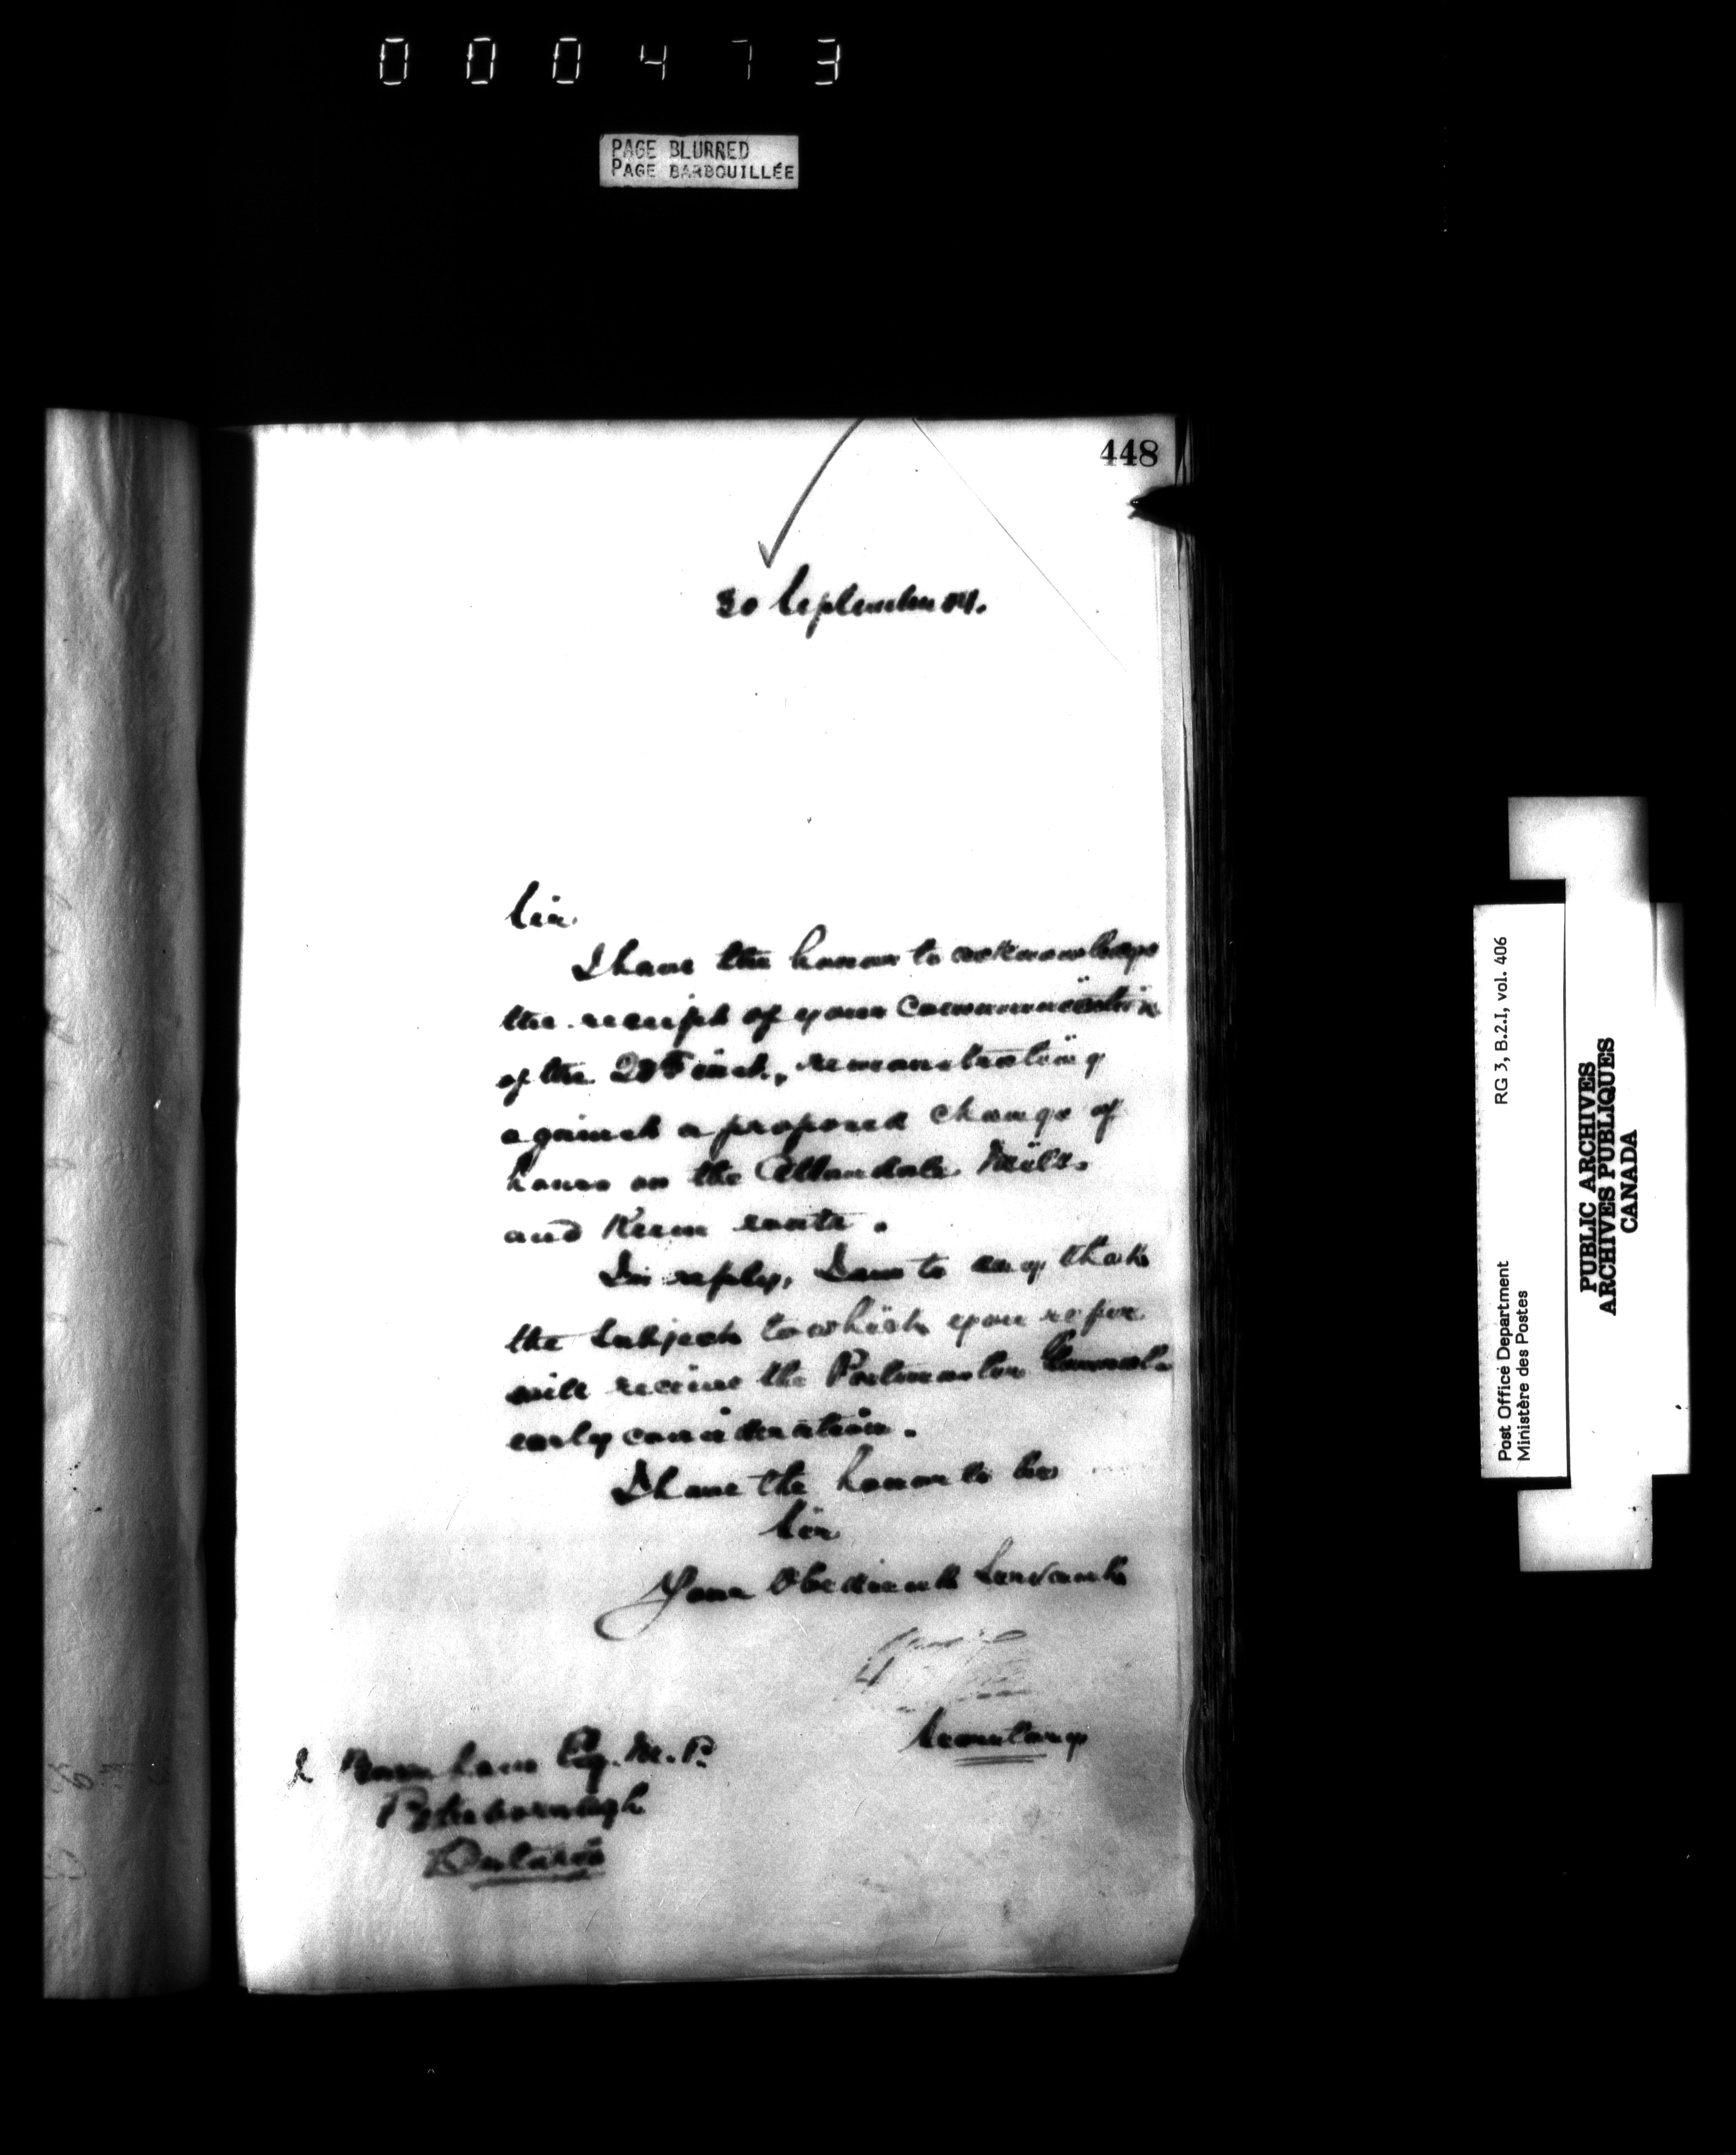 000473
PAGE BLURRED
PAGE BARBOUILLÉE
448
30 September 84.
Sir
I have the honor to acknowledge
the receipt of your Communication
of the 28th inst., remonstrating
against a proposed change of
hours on the Allandale Mills
and Keene route.
In reply, I am to say that
the subject to which you refer
will receive the Postmaster General's
early consideration.
I have the honor to be
Sir
Your Obedient Servant
Secretary
Burnham Esq. M.P.
Peterborough
Ontario
RG 3, B.2.I, vol. 406
Post Office Department
Ministère des Postes
PUBLIC ARCHIVES
ARCHIVES PUBLIQUES
CANADA